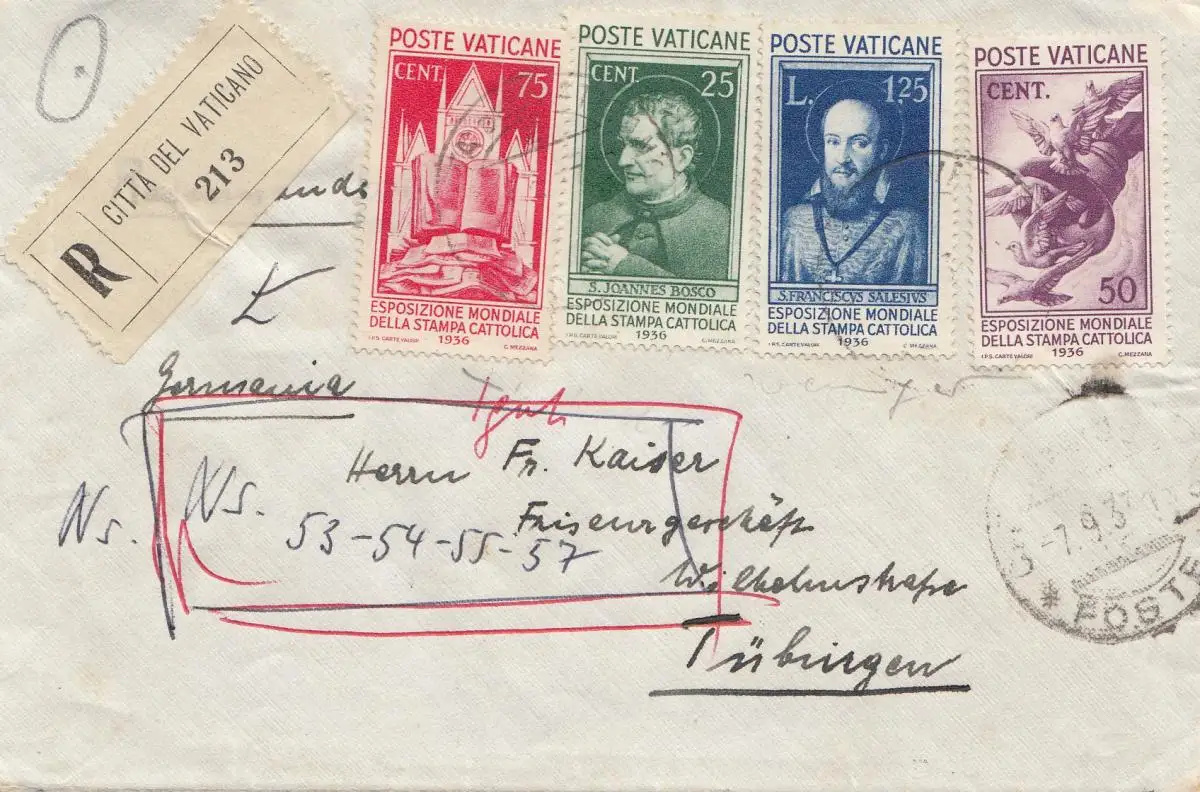 CITTÀ DEL VATICANO
R
213
POSTE VATICANE
CENT. 75
ESPOSIZIONE MONDIALE
DELLA STAMPA CATTOLICA
I.P.S. CARTE VALORI 1936 C. MEZZANA
POSTE VATICANE
CENT. 25
S. JOANNES BOSCO
ESPOSIZIONE MONDIALE
DELLA STAMPA CATTOLICA
I.P.S. CARTE VALORI 1936 C. MEZZANA
POSTE VATICANE
L. 1,25
S. FRANCISCVS SALESIVS
ESPOSIZIONE MONDIALE
DELLA STAMPA CATTOLICA
I.P.S. CARTE VALORI 1936 C. MEZZANA
POSTE VATICANE
CENT.
50
ESPOSIZIONE MONDIALE
DELLA STAMPA CATTOLICA
I.P.S. CARTE VALORI 1936 C. MEZZANA
Germania
Herrn Fr. Kaiser
Friseurgeschäft
Wilhelmstraße
Tübingen
Ns.
Ns.
53-54-55-57
-7.9.3
* POSTE